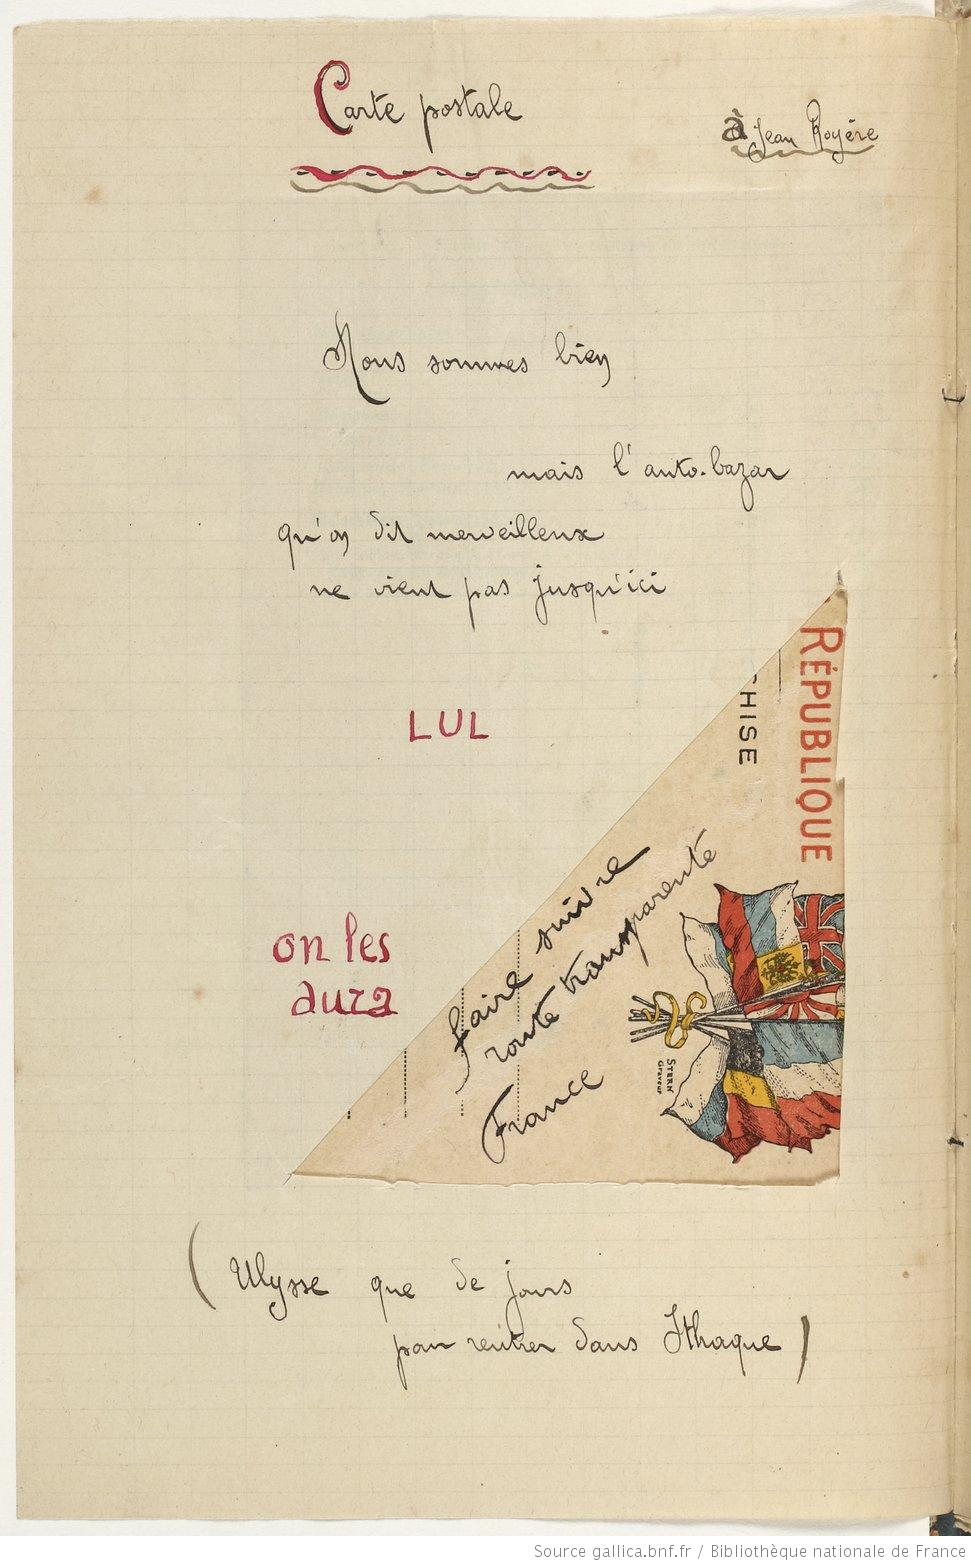 Carte postale
à Jean Royère
Nous sommes bien
mais l'auto-bazar
qu'on dit merveilleux
ne vient pas jusqu'ici
LUL
on les
aura
RÉPUBLIQUE
CHISE
faire suivre
route transparente
France
STERN
Graveur
(Ulysse que de jours
pour rentrer dans Ithaque)
Source gallica.bnf.fr / Bibliothèque nationale de France